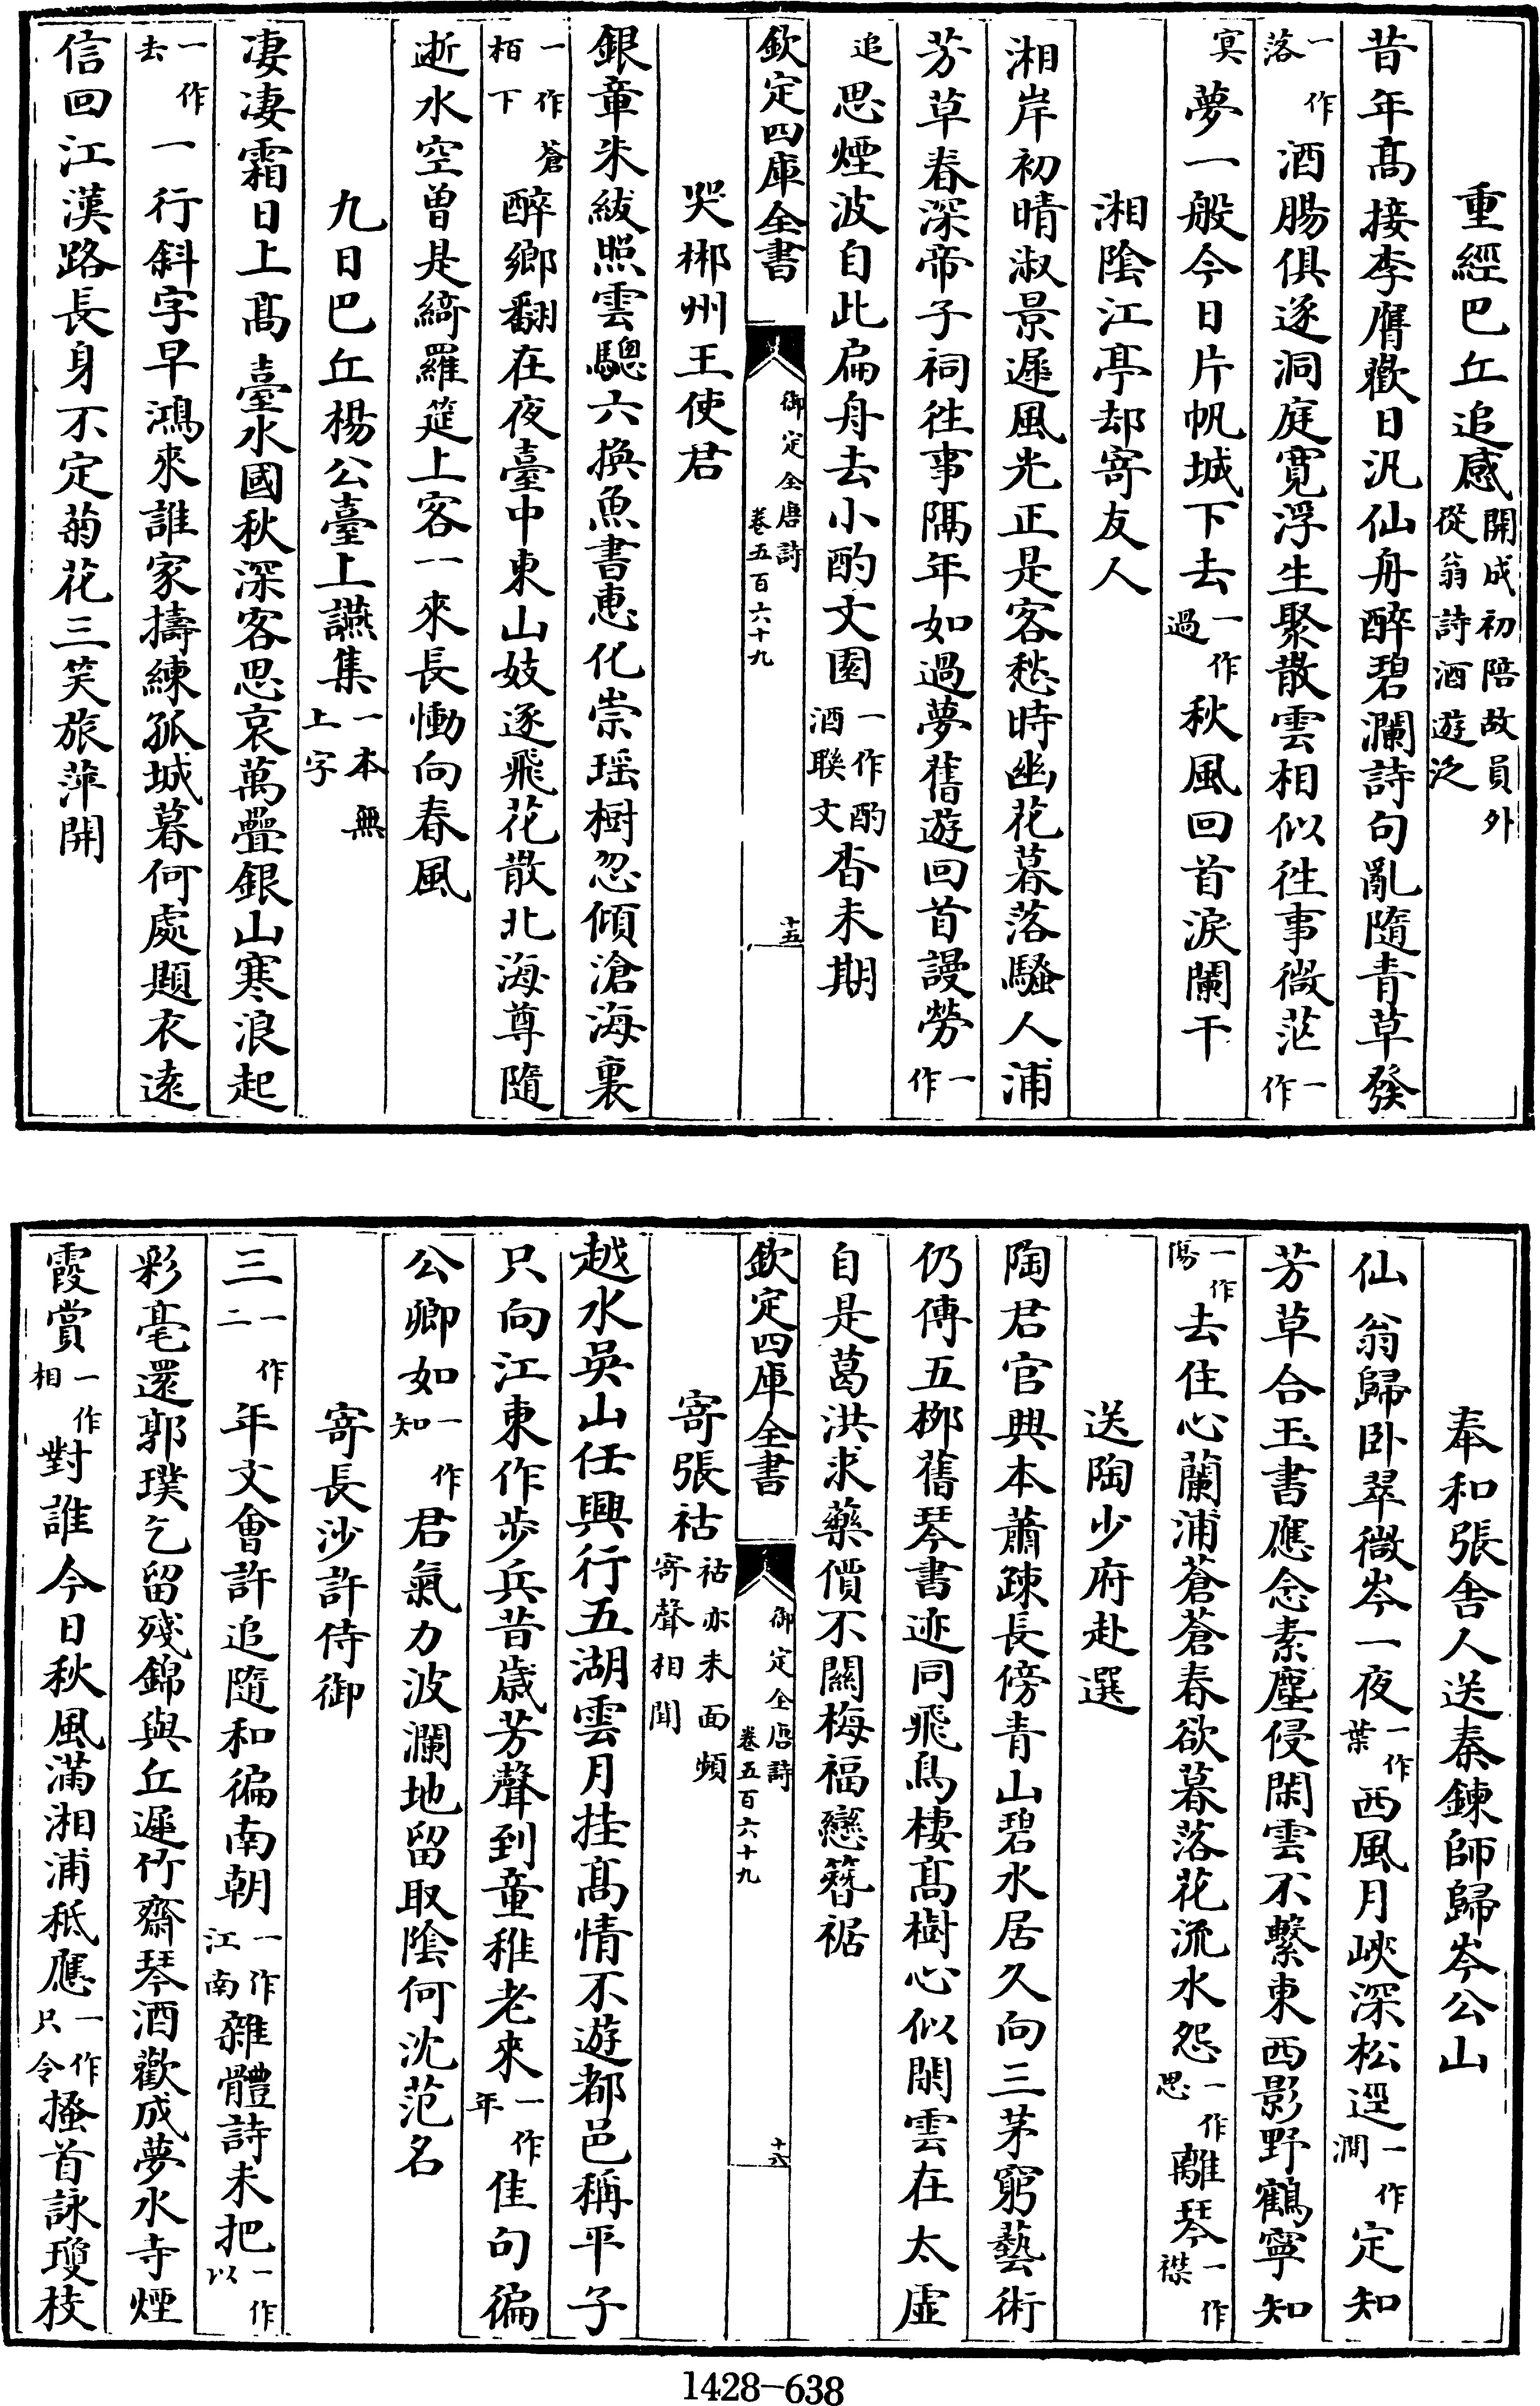 重經巴丘追感開成初陪故員外從翁詩酒遊泛
昔年髙接李膺歡日汎仙舟醉碧瀾詩句亂隨青草發
一作落酒腸俱逐洞庭寬浮生聚散雲相似往事微茫一作
冥夢一般今日片帆城下去一作過秋風回首淚闌干
湘陰江亭却寄友人
湘岸初晴淑景遲風光正是客愁時幽花暮落騷人浦
芳草春深帝子祠往事隔年如過夢舊遊回首謾勞一作
追思煙波自此扁舟去小酌文園一作酌酒聯文杳未期
欽定四庫全書
御定全唐詩
卷五百六十九
十五
哭郴州王使君
銀章朱紱照雲驄六換魚書惠化崇瑶樹忽傾滄海裏
一作蒼栢下醉鄉翻在夜臺中東山妓逐飛花散北海尊隨
逝水空曾是綺羅筵上客一來長慟向春風
九日巴丘楊公臺上讌集一本無上字
凄凄霜日上髙臺水國秋深客思哀萬疊銀山寒浪起
一作去一行斜字早鴻來誰家擣練孤城暮何處題衣遠
信回江漢路長身不定菊花三笑旅萍開
奉和張舍人送秦鍊師歸岑公山
仙翁歸卧翠微岑一夜一作葉西風月峽深松逕一作澗定知
芳草合玉書應念素塵侵閑雲不繫東西影野鶴寧知
一作傷去住心蘭浦蒼蒼春欲暮落花流水怨一作思離琴一作襟
送陶少府赴選
陶君官興本蕭疎長傍青山碧水居久向三茅窮藝術
仍傳五栁舊琴書迹同飛鳥棲髙樹心似閑雲在太虛
自是葛洪求藥價不關梅福戀簪裾
欽定四庫全書
御定全唐詩
卷五百六十九
十六
寄張祜祜亦未面頻寄聲相聞
越水吳山任興行五湖雲月挂髙情不遊都邑稱平子
只向江東作步兵昔歲芳聲到童稚老來一作年佳句徧
公卿如一作知君氣力波瀾地留取陰何沈范名
寄長沙許侍御
三一作二年文會許追隨和徧南朝一作江南雜體詩未把一作以
彩毫還郭璞乞留殘錦與丘遲竹齋琴酒歡成夢水寺煙
霞賞一作相對誰今日秋風滿湘浦秪應一作只令搔首詠瓊枝
1428-638